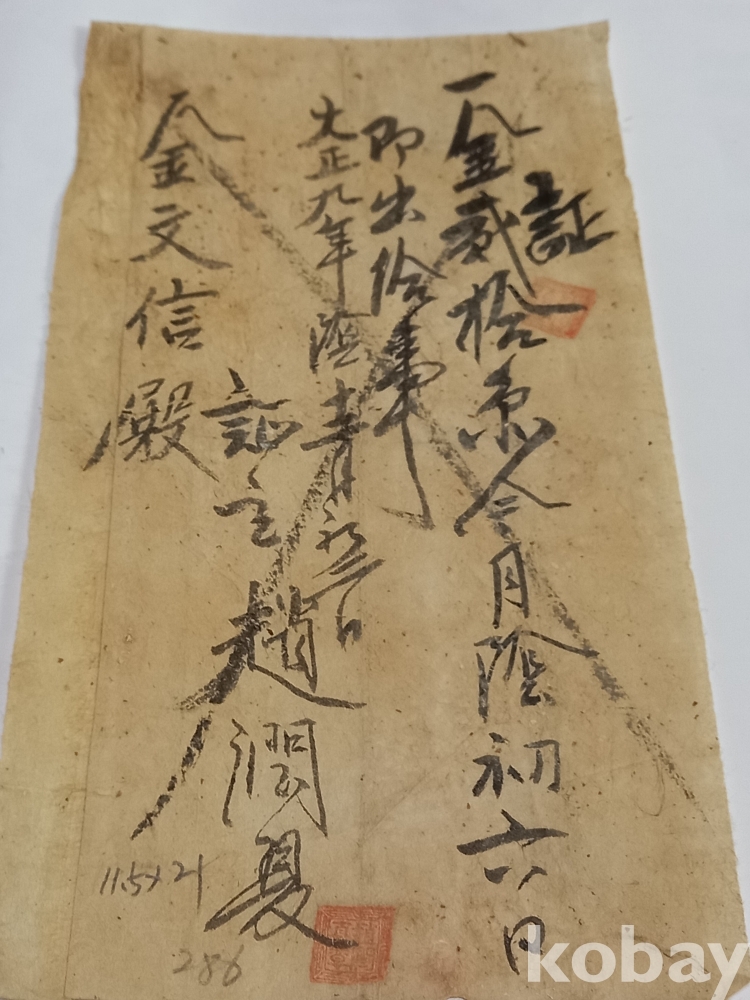 証
一金貳拾今月陰初六日
即出給事
大正九年陰月初日
証主趙潤夏
金文信殿
11.5×21
286
kobay